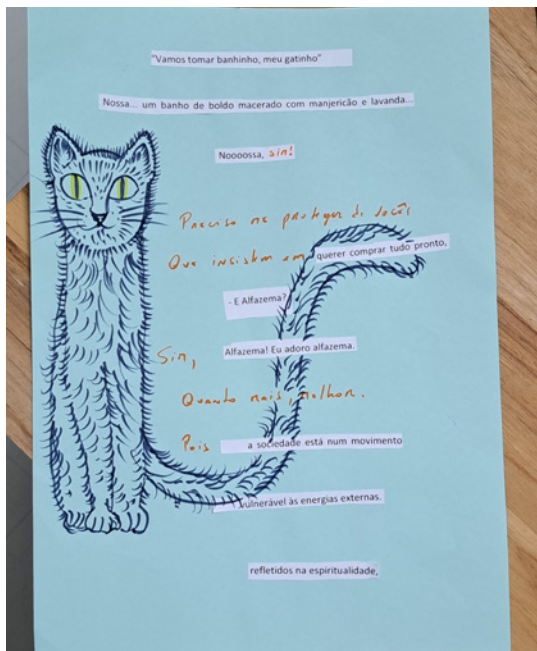 "Vamos tomar banhinho, meu gatinho"
Nossa... um banho de boldo macerado com manjericão e lavanda...
Noooossa, sim!
Preciso me proteger de vocês
Que insistem em querer comprar tudo pronto.
- E Alfazema?
Sim, Alfazema! Eu adoro alfazema.
Quanto mais, melhor.
Pois a sociedade está num movimento
vulnerável às energias externas.
refletidos na espiritualidade,